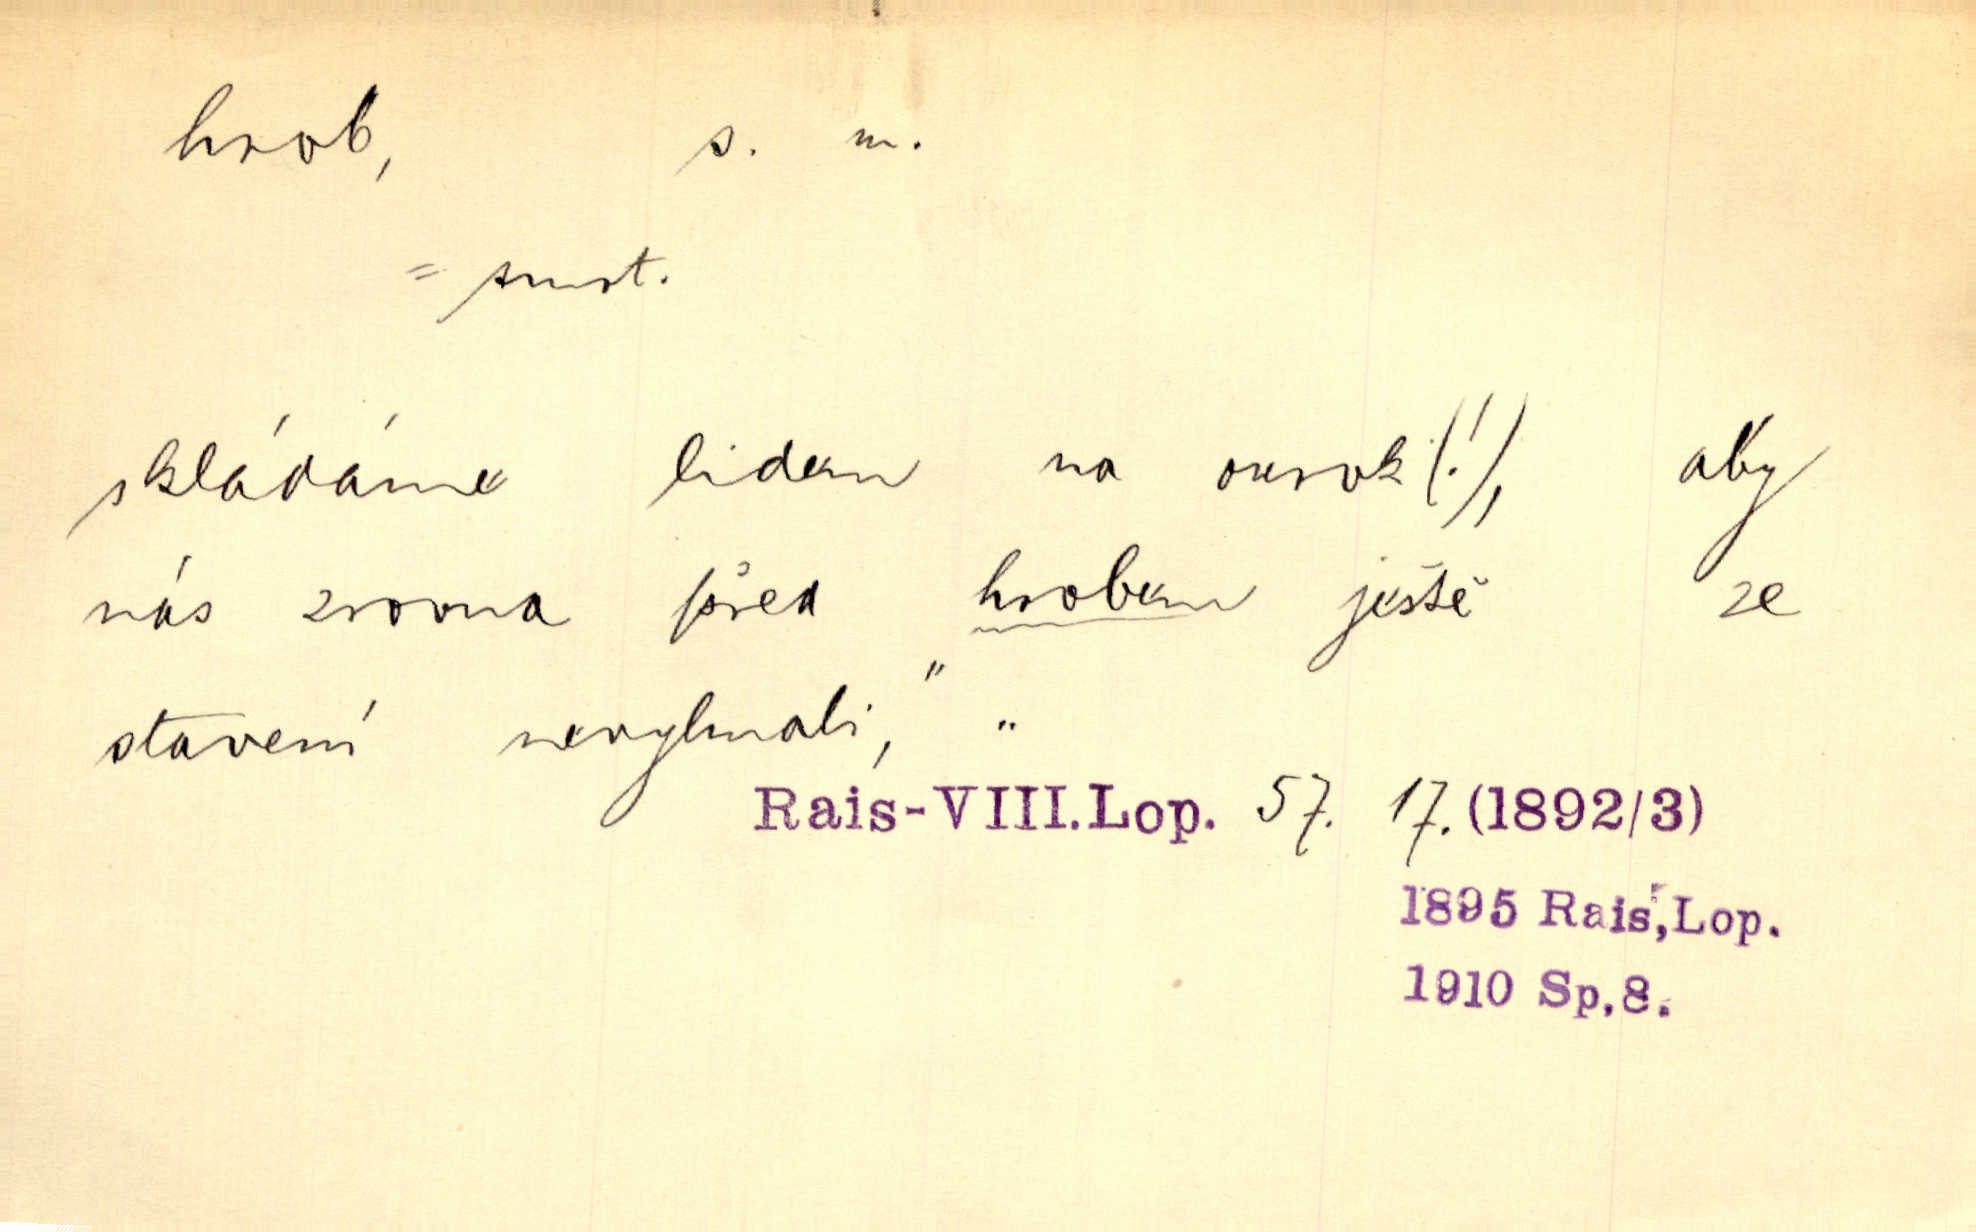 hrob, s. m.
= smrt.
skládáme lidem na ourok(!), aby
nás zrovna před hrobem ještě ze
stavení nevyhnali," "
Rais-VIII.Lop. 57. 17. (1892/3)
1895 Rais,Lop.
1910 Sp.8.